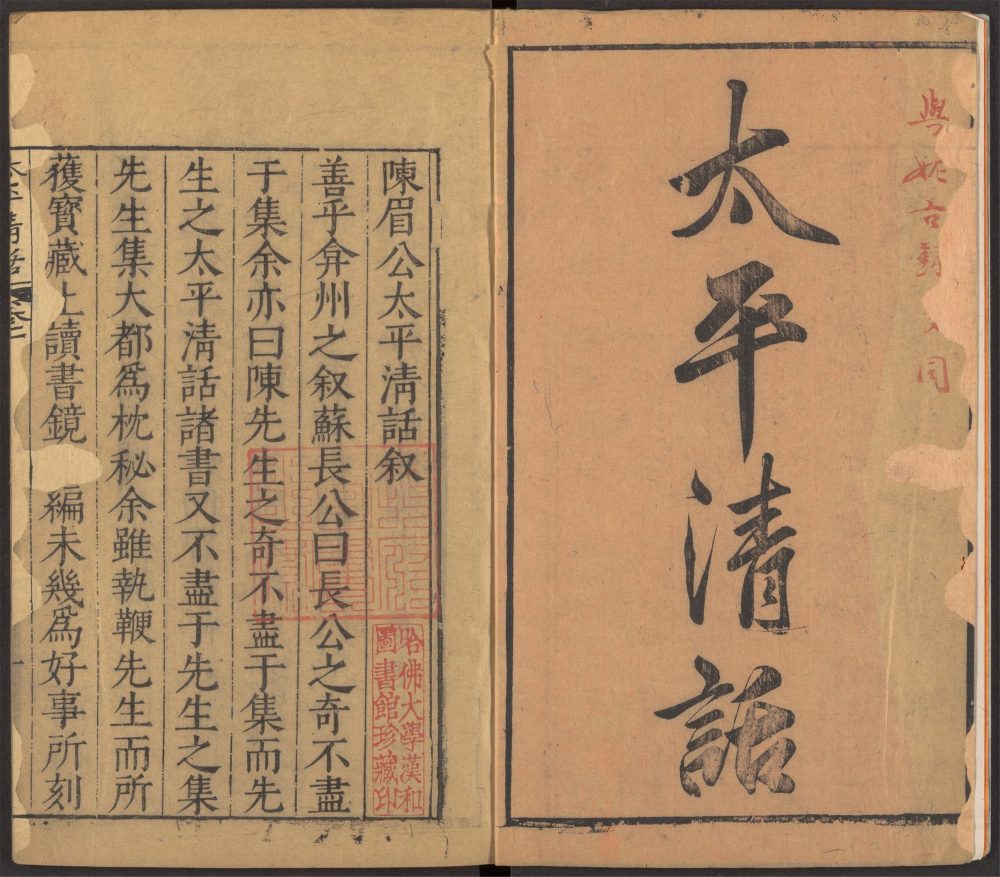 與 古 同
太平清話
陳眉公太平清話叙
善乎弇州之叙蘇長公曰長公之奇不盡
于集余亦曰陳先生之奇不盡于集而先
生之太平清話諸書又不盡于先生之集
先生集大都爲枕秘余雖執鞭先生而所
獲寶藏止讀書鏡 編未幾爲好事所刻
哈佛大學漢和
圖書館珍藏印
太平清話